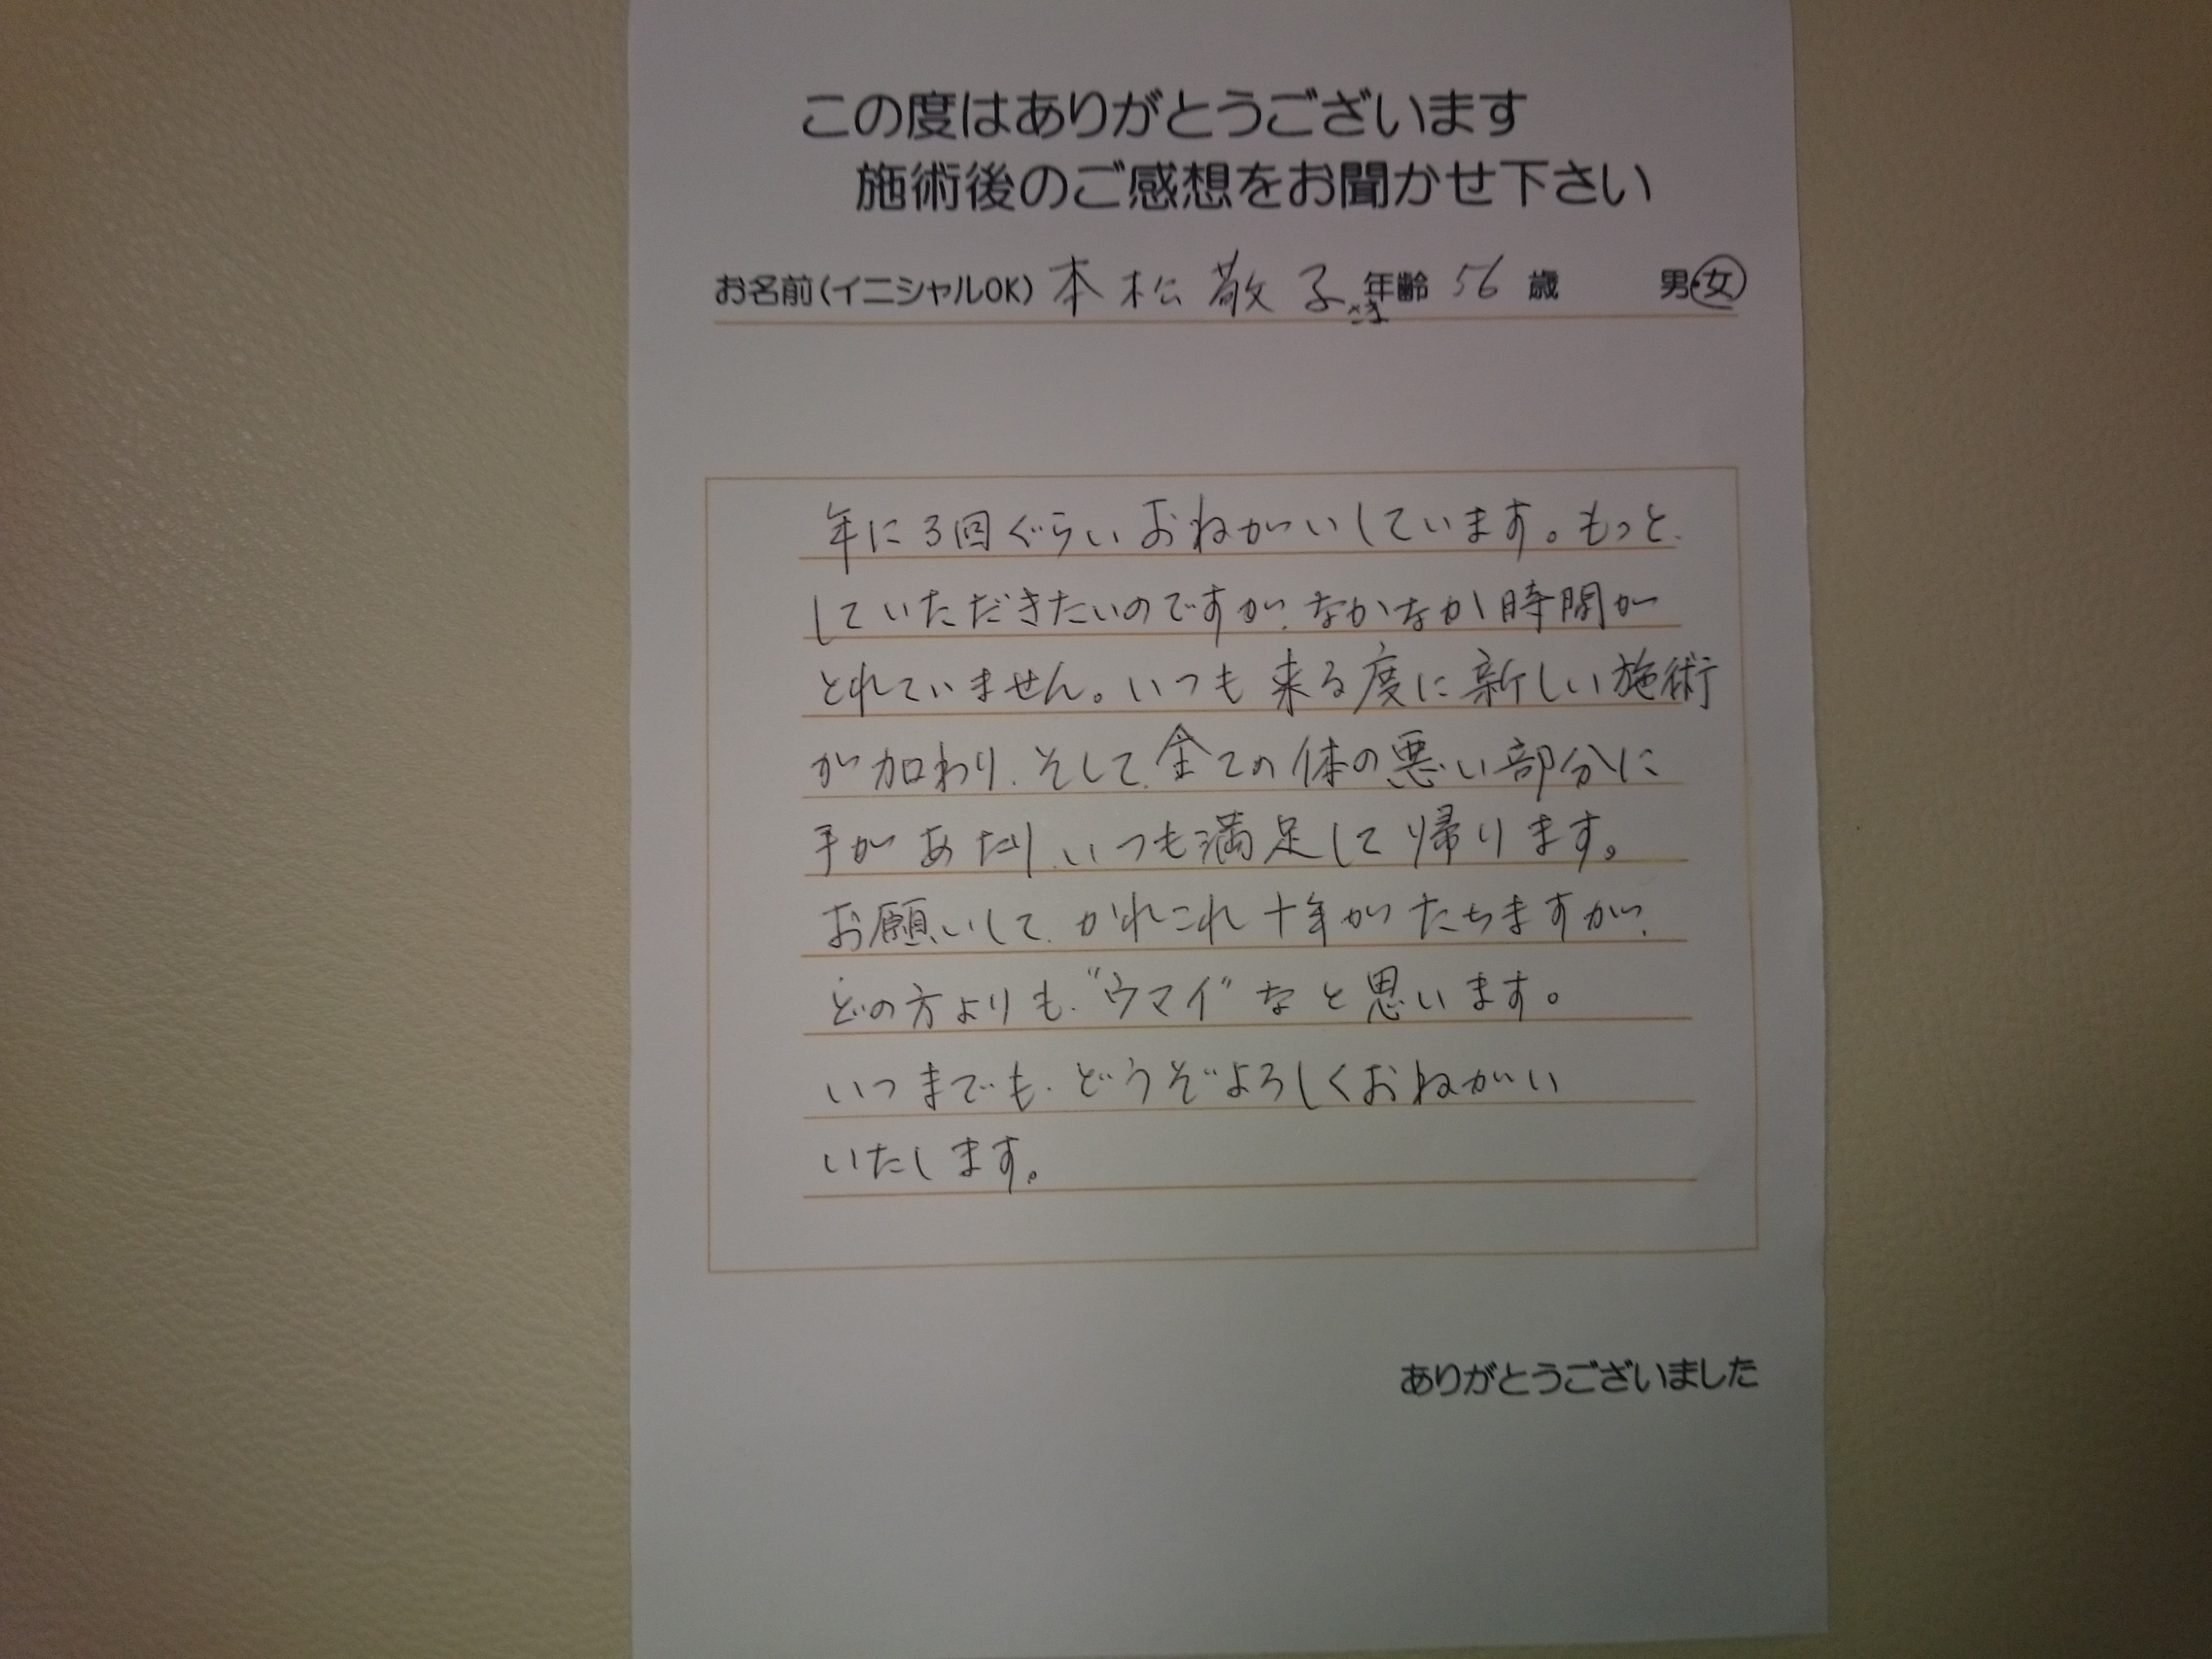 この度はありがとうございます
施術後のご感想をお聞かせ下さい
お名前(イニシャルOK) 本松敬子さま 年齢 56 歳 男・女
年に3回ぐらいおねがいしています。もっと
していただきたいのですが、なかなか時間が
とれていません。いつも来る度に新しい施術
が加わり、そして、全ての体の悪い部分に
手があたり、いつも満足して帰ります。
お願いして、かれこれ十年がたちますが、
どの方よりも、"ウマイ"なと思います。
いつまでも、どうぞよろしくおねがい
いたします。
ありがとうございました